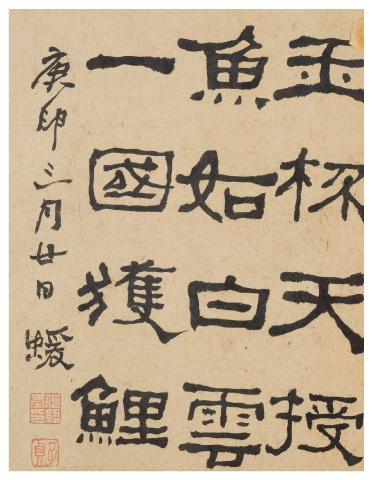 玉杯天授
魚如白雲
一國獲鯉
庚申三月廿日蝯
子貞